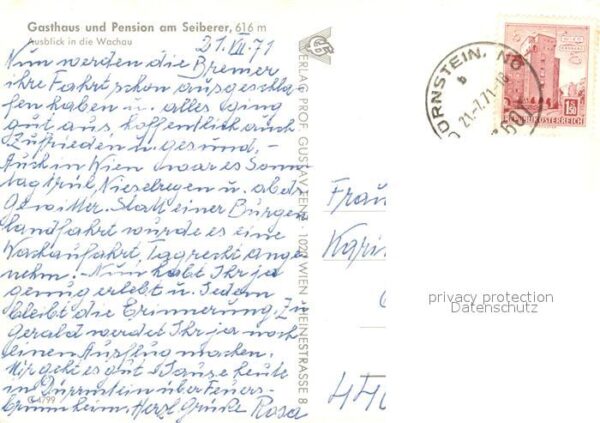 Gasthaus und Pension am Seiberer, 616 m
Ausblick in die Wachau
21. VII. 71
Nun werden die
Bremer
ihre Fahrt schon ausgeschla-
fen haben u. alles ging
gut aus, hoffentlich auch
zufrieden u. gesund, -
Auch in Wien war es Sonn-
tag früh, Nieselregen u. abds.
Gewitter. Statt einer Burgen-
landfahrt wurde es eine
Wachaufahrt, Tag recht ange-
nehm. - Nun habt Ihr ja
genug erlebt u. Jedem
bleibt die Erinnerung. Zu
Gerald werdet Ihr ja noch
einen Ausflug machen.
Mir geht es gut - Sause heute
in Dürnstein über Feuers-
brunn heim. Herzl. Grüße Rosa
C 4799
VERLAG PROF. GUSTAV FENZ · 1020 WIEN · HEINESTRASSE 8
DÜRNSTEIN, NÖ
b
21.-7.71-16
1.50
REPUBLIK ÖSTERREICH
Frau
Kari
440
privacy protection
Datenschutz